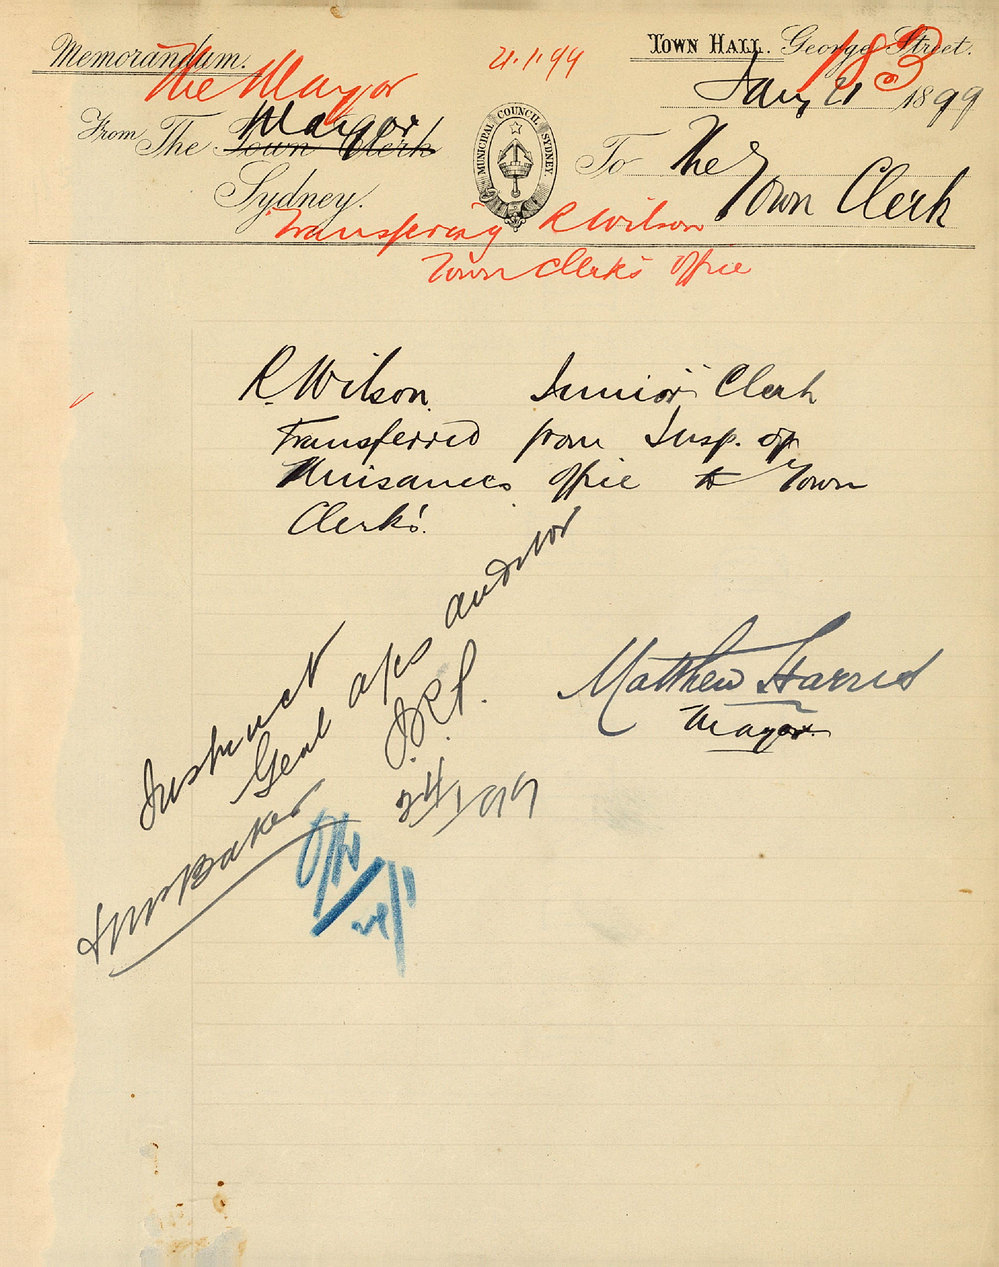 Memorandum.
The Mayor
21.1.99
Town Hall. George Street.
183
Jany 21 1899
From The Town Clerk
Mayor
Sydney.
MUNICIPAL COUNCIL SYDNEY
To The
Town Clerk
Transfering R Wilson
Town Clerk's Office
R. Wilson. Junior Clerk
Transferred from Insp. of
Nuisances Office to Town
Clerk's.
Matthew Harris
Mayor.
Instruct
Genl a/cs auditor
J.R.P.
24/1/99
Baker